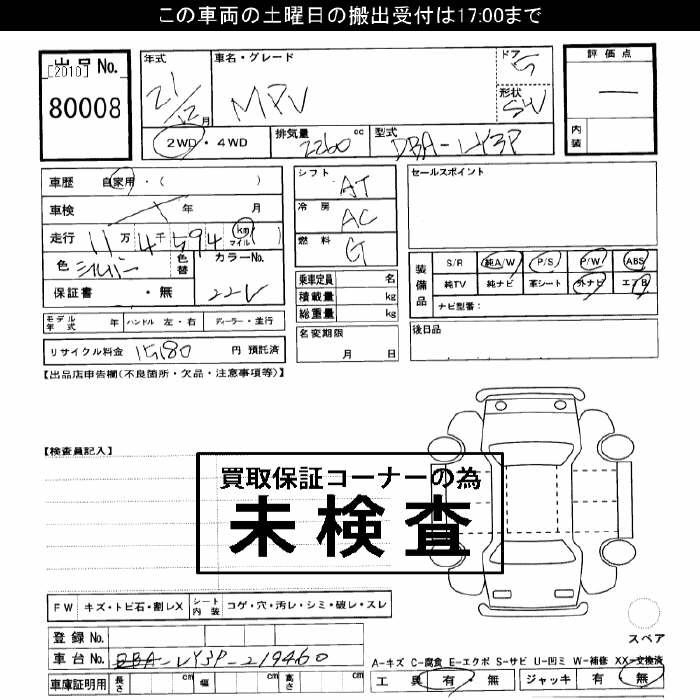 この車両の土曜日の搬出受付は17:00まで
出品No.
[2010]
80008
年式
21/12月
車名・グレード
MPV
ドア
5
形状
SW
評価点
—
内装
2WD・4WD
排気量 2260 cc
型式 DBA-LY3P
車歴 自家用・( )
車検 年 月
走行 11万4千594 km マイル
色 シルバー 色替 カラーNo.
保証書 ・ 無 22V
モデル年式 年 ハンドル 左・右 ディーラー・並行
リサイクル料金 15180 円 預託済
シフト AT
冷房 AC
燃料 G
乗車定員 名
積載量 kg
総重量 kg
名変期限
月 日
セールスポイント
装備品
S/R 純A/W P/S P/W ABS
純TV 純ナビ 革シート 外ナビ エアB
ナビ型番:
後日品
【出品店申告欄(不良箇所・欠品・注意事項等)】
【検査員記入】
買取保証コーナーの為
未検査
FW キズ・トビ石・割レX シート内装 コゲ・穴・汚レ・シミ・破レ・スレ
登録No.
車台No. DBA-LY3P-219460
車庫証明用 長さ cm 幅 cm 高さ cm
スペア
A-キズ C-腐食 E-エクボ S-サビ U-凹ミ W-補修 XX-交換済
工具 有・無 ジャッキ 有・無